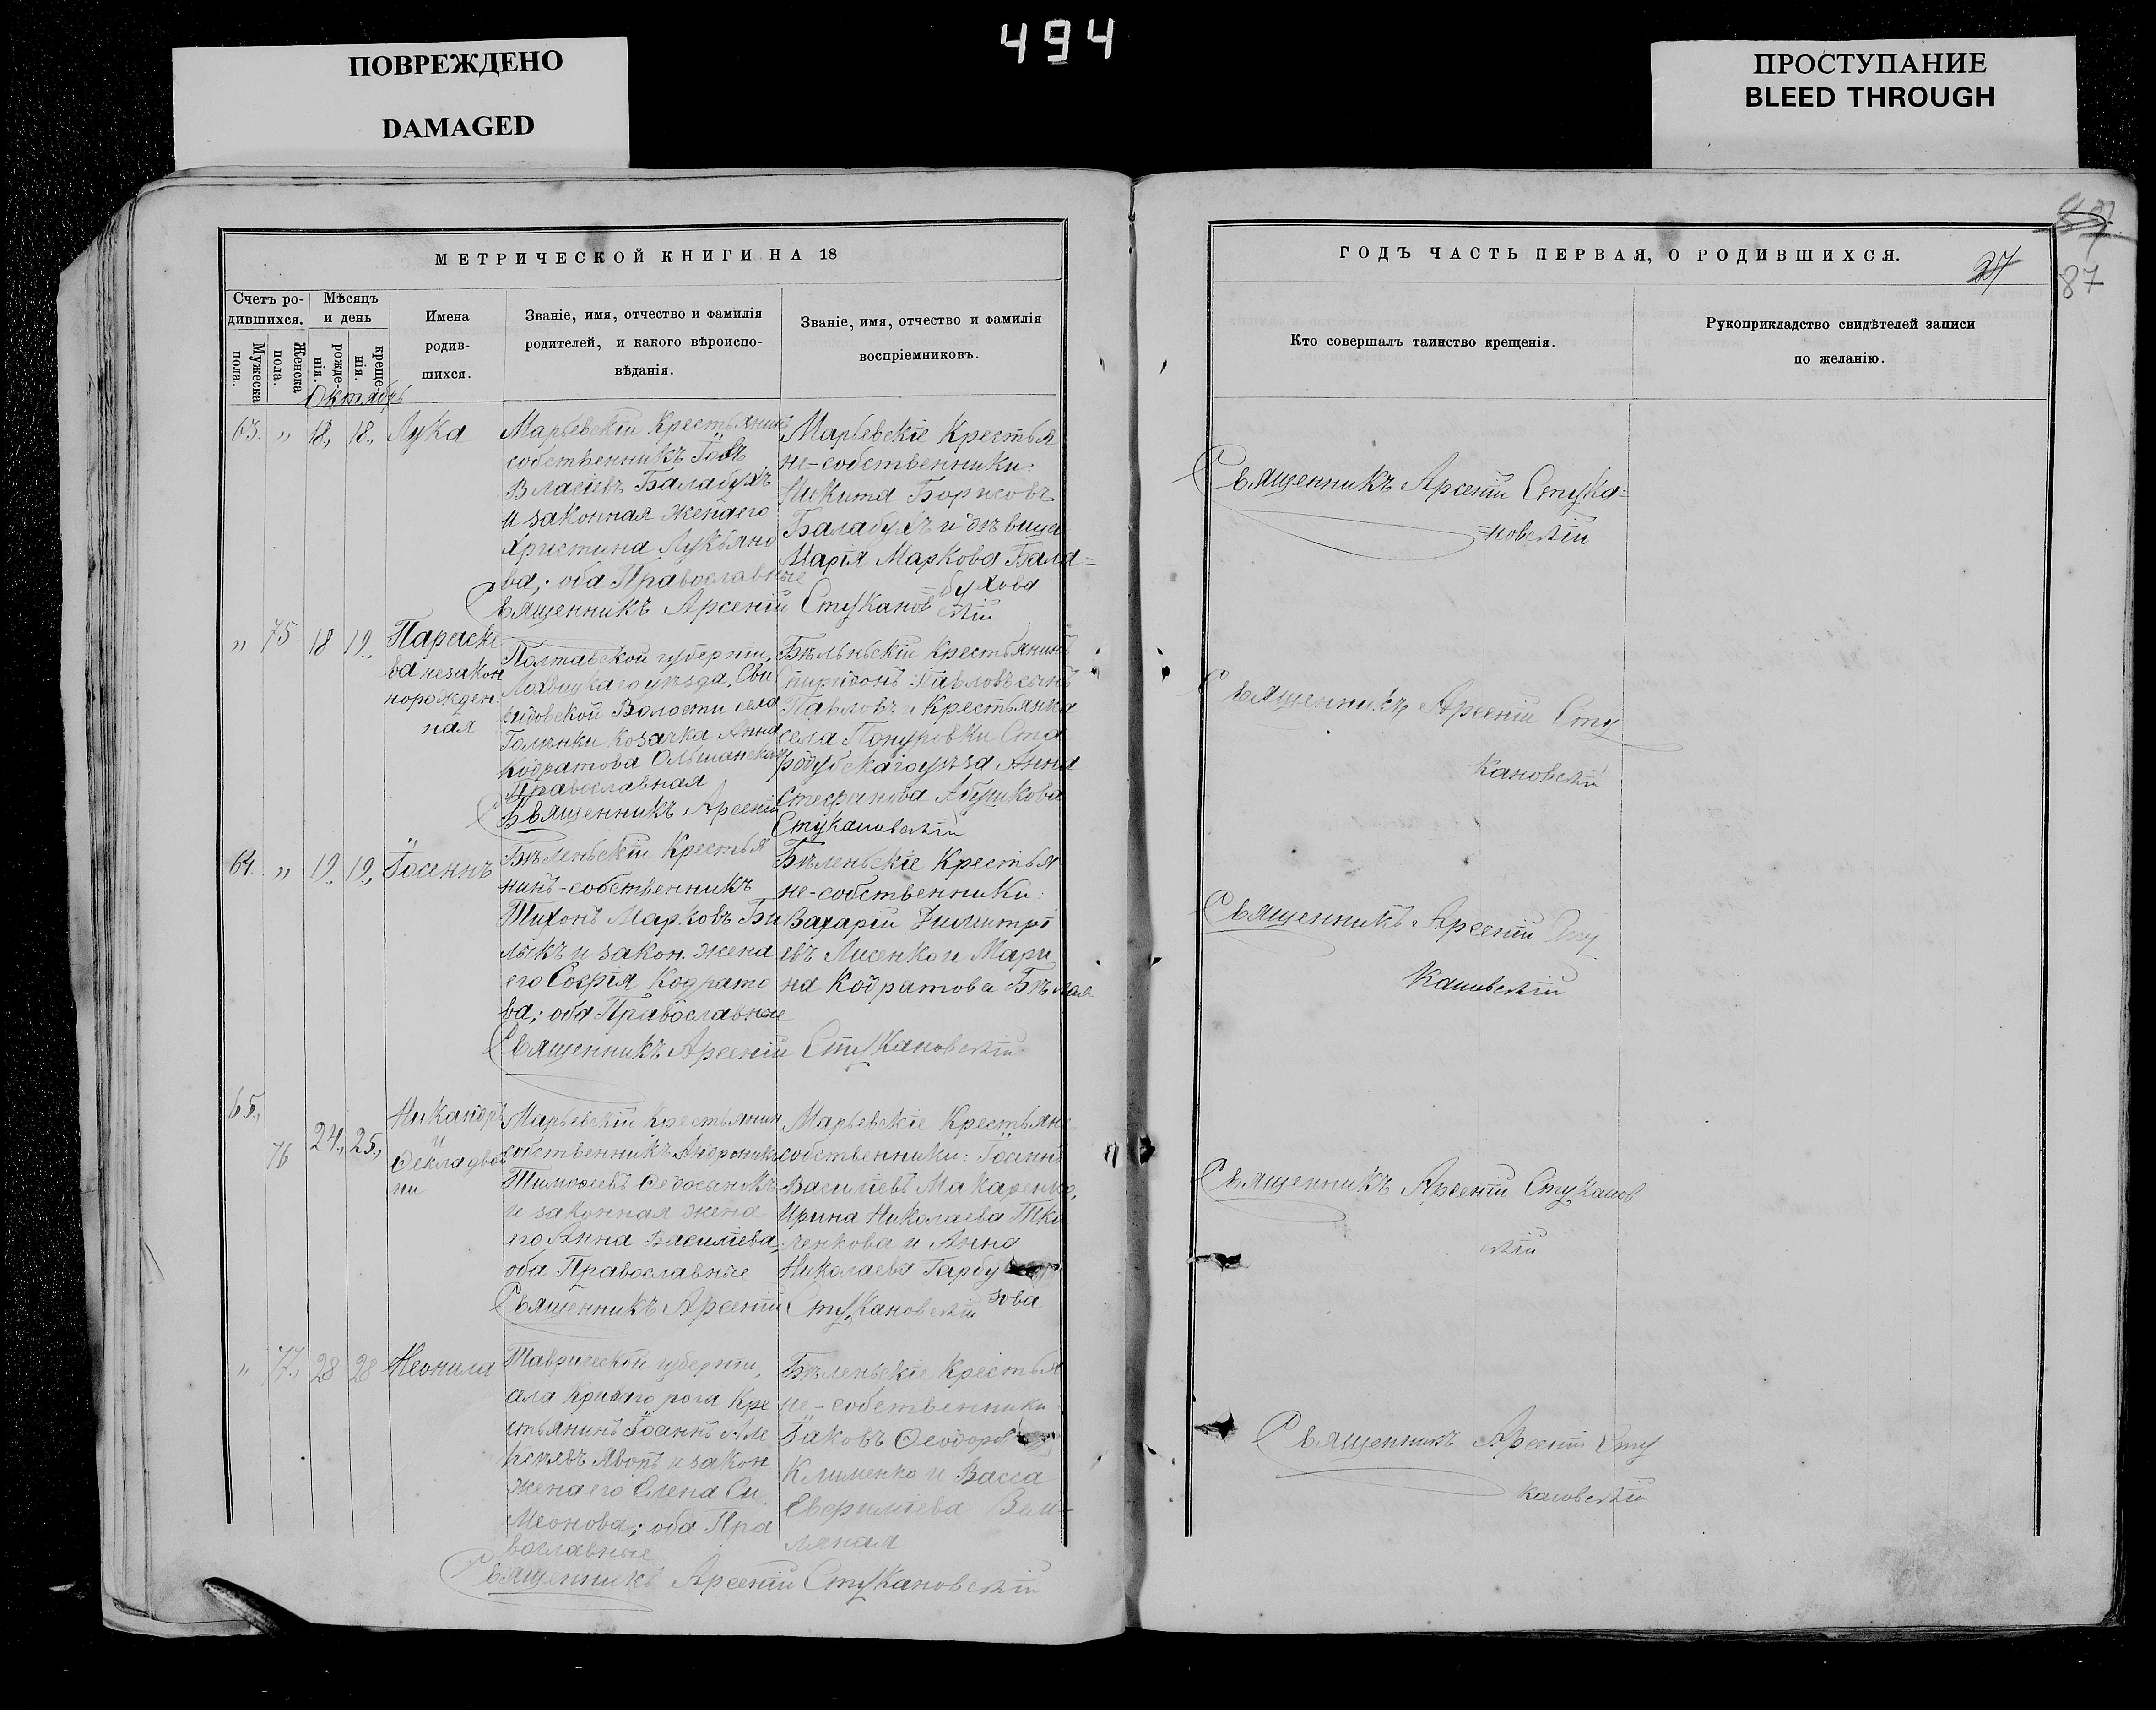 494
ПОВРЕЖДЕНО
DAMAGED
ПРОСТУПАНИЕ
BLEED THROUGH
МЕТРИЧЕСКОЙ КНИГИ НА 18
Счетъ ро-
дившихся.
Мужеска
пола.
Женска
пола.
Мѣсяцъ
и день
рожде-
нія.
креще-
нія.
Имена
родив-
шихся.
Званіе, имя, отчество и фамилія
родителей, и какого вѣроиспо-
вѣданія.
Званіе, имя, отчество и фамилія
воспріемниковъ.
Октябрь
63. " 18., 18., Лука
Марьевскій Крестьянинъ
собственникъ Іовъ
Власіевъ Балабухъ
и законная жена его
Христина Лукьяно
ва; оба Православные
Марьевскіе Крестья
не-собственники:
Никита Борисовъ
Балабухъ и дѣвица
Марія Маркова Бала=
бухова
Священникъ Арсеній Стуканов
скій
" 75. 18 19.,
Параске
ва незакон
норожден
ная
Полтавской губерніи,
Лохвицкаго уѣзда,
Волости села
Козачка Анна
Кодратова Ольшанская
Православная
Бѣленьскій Крестьянинъ
Спиридонъ Павловъ сынъ
Павловъ и Крестьянка
села Понуровки Ста
родубскаго уѣзда Анна
Стефанова
Священникъ Арсеній
Стукановскій
64. " 19., 19., Іоаннъ
Бѣленьскій Крестья
нинъ-собственникъ
Тихонъ Марковъ Би
лыкъ и закон. жена
его Софія Кодрато
ва; оба Православные
Бѣленьскіе Крестья
не-собственники:
Захарій Димитрі
евъ Лисенко и Мари
на Кодратова Бѣлая
Священникъ Арсеній Стукановскій
65.,
76 24., 25.,
Никандръ
и
Ѳекла двой
ни
Марьевскій Крестьянин
собственникъ Андроникъ
Тимоѳеевъ
и законная жена
его Анна Василіева,
оба Православные
Марьевскіе Крестьяне
собственники: Іоаннъ
Василіевъ Макаренко,
Ирина Николаева Тка
ченкова и Анна
Николаева Гарбу
зова
Священникъ Арсеній Стукановскій
" 77., 28 28 Неонила
Таврической губерніи,
села Криваго рога Кре
стьянинъ Іоаннъ Але
ксѣевъ Яворъ и закон
жена его Елена Си
меонова; оба Пра
вославные
Бѣленьскіе Крестья
не-собственники
Іаковъ Ѳеодоровъ
Клименко и Васса
Евфиміева Зем-
ляная
Священникъ Арсеній Стукановскій
ГОДЪ ЧАСТЬ ПЕРВАЯ, О РОДИВШИХСЯ.
27
87
Кто совершалъ таинство крещенія.
Рукоприкладство свидѣтелей записи
по желанію.
Священникъ Арсеній Стука=
=новскій
Священникъ Арсеній Сту
кановскій
Священникъ Арсеній Сту
кановскій
Священникъ Арсеній Стуканов
скій
Священникъ Арсеній Сту
кановскій